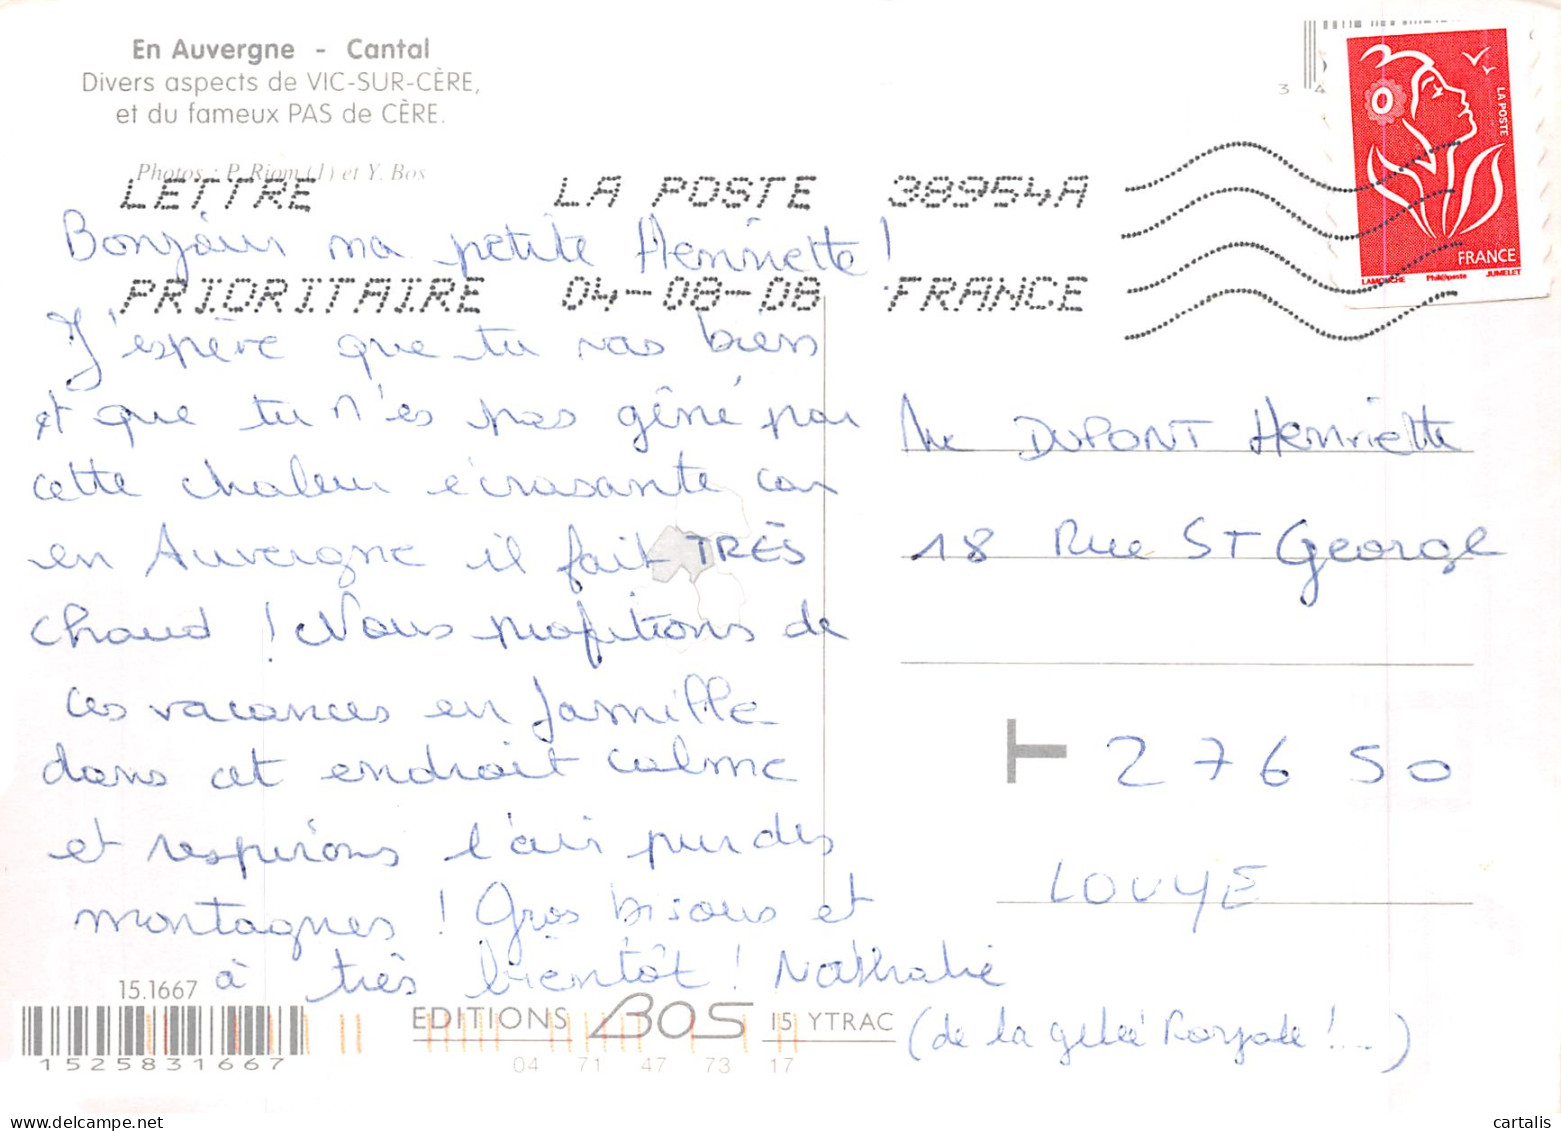 En Auvergne - Cantal
Divers aspects de VIC-SUR-CÈRE,
et du fameux PAS de CÈRE.
Photos : P. Riom (1) et Y. Bos
LETTRE LA POSTE 38954A
PRIORITAIRE 04-08-08 FRANCE
LA POSTE
FRANCE
LAMOUCHE Phil@poste JUMELET
3 4
Bonjour ma petite Henriette !
J'espère que tu vas bien
et que tu n'es pas gêné par
cette chaleur écrasante car
en Auvergne il fait TRÈS
chaud ! Nous profitons de
ces vacances en famille
dans cet endroit calme
et respirons l'air pur des
montagnes ! Gros bisous et
à très bientôt ! Nathalie
(de la gelée Royale !...)
Me DUPONT Henriette
18 Rue ST George
T 27650
LOUYE
15.1667
1525831667
EDITIONS BOS 15 YTRAC
04 71 47 73 17
cartalis